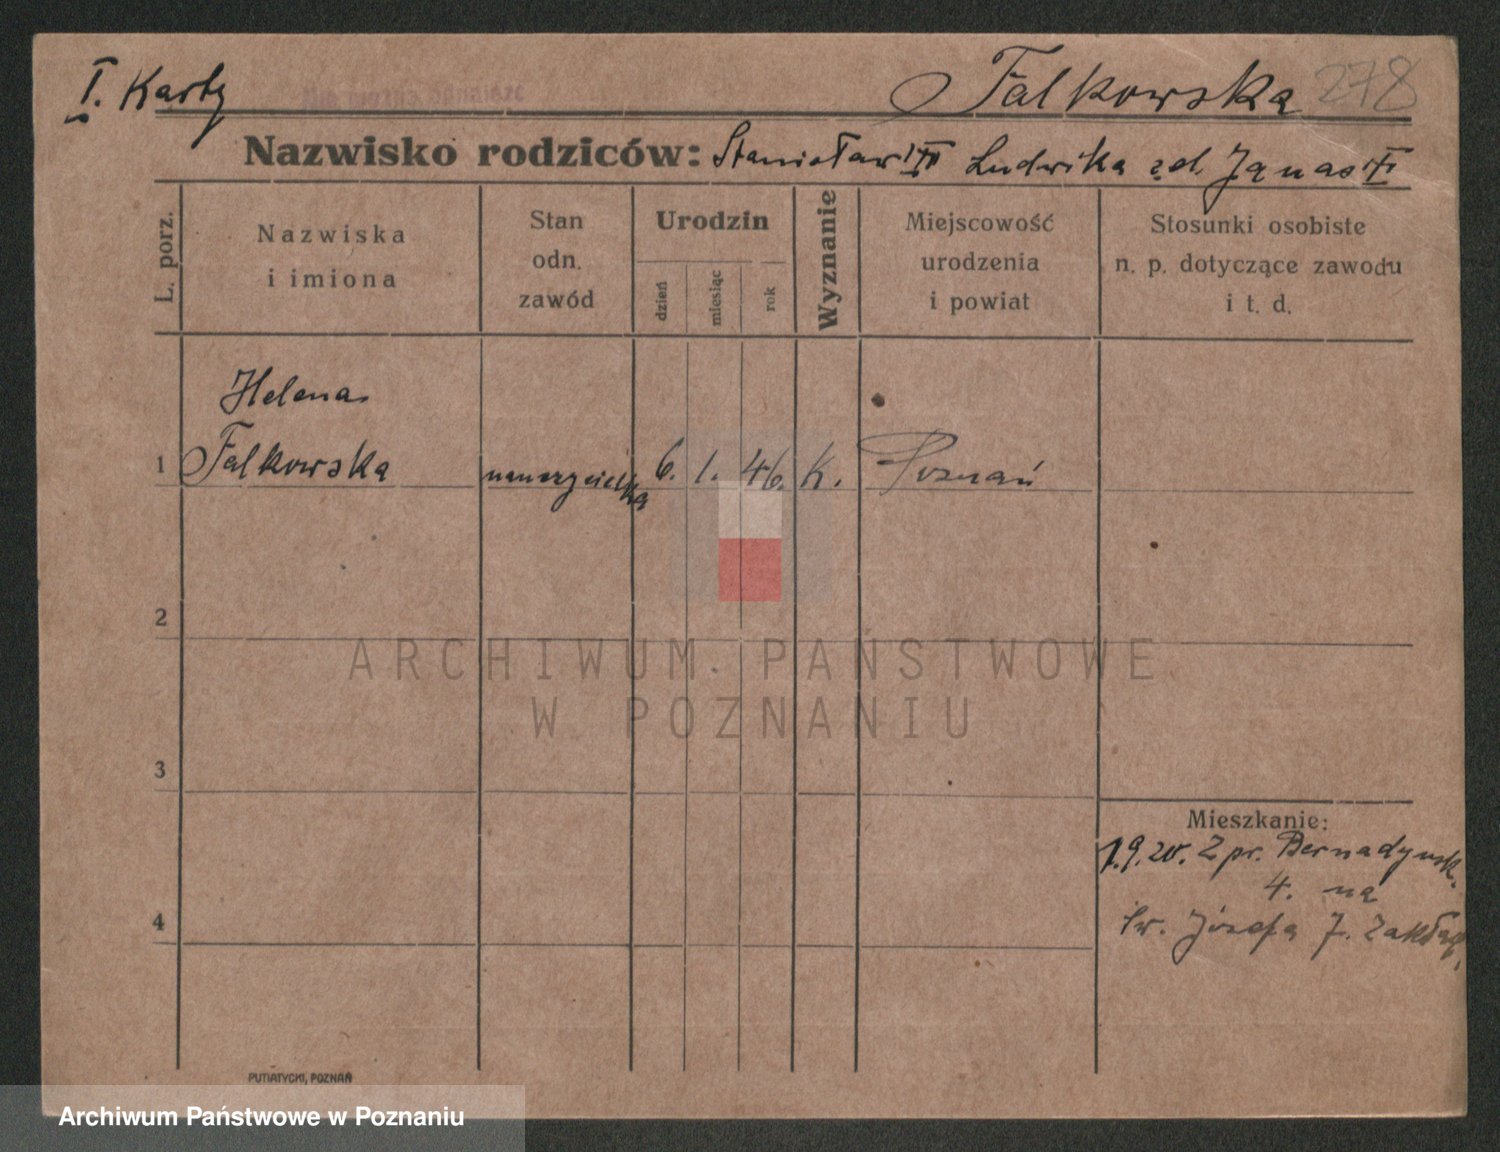 I. Karty
Falkowska 278
Nazwisko rodziców: Stanisław Ludwika zd. Janas
L. porz.
Nazwiska
i imiona
Stan
odn.
zawód
Urodzin
dzień
miesiąc
rok
Wyznanie
Miejscowość
urodzenia
i powiat
Stosunki osobiste
n. p. dotyczące zawodu
i t. d.
Helena
1 Falkowska nauczycielka 6. 1. 46. K. Poznań
2
ARCHIWUM PAŃSTWOWE
W POZNANIU
3
Mieszkanie:
1.9.20. Z pr. Bernadyńsk.
4. na
św. Józefa 7. Zakład.
4
PUTIATYCKI, POZNAŃ
Archiwum Państwowe w Poznaniu